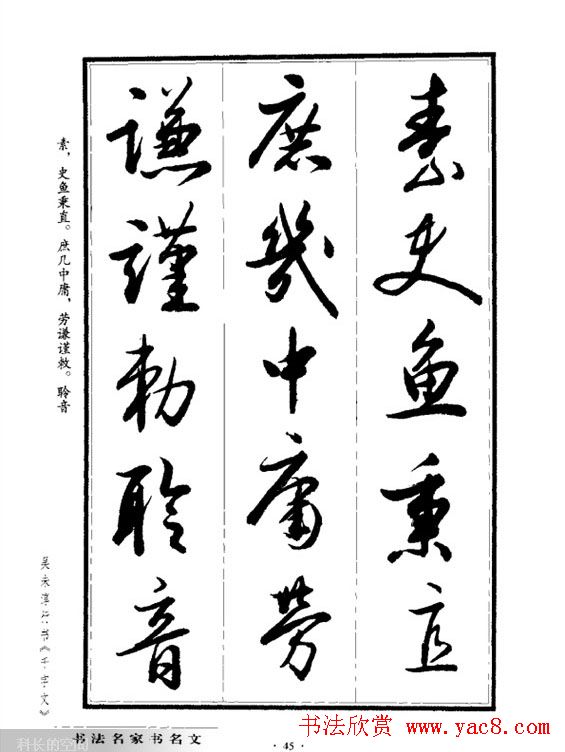 素史鱼秉直
庶几中庸劳
謙謹勅聆音
素，史鱼秉直。庶几中庸，劳谦谨敕。聆音
吴未淳行书《千字文》
书法名家书名文
·45·
科长的空间
书法欣赏 www.yac8.com